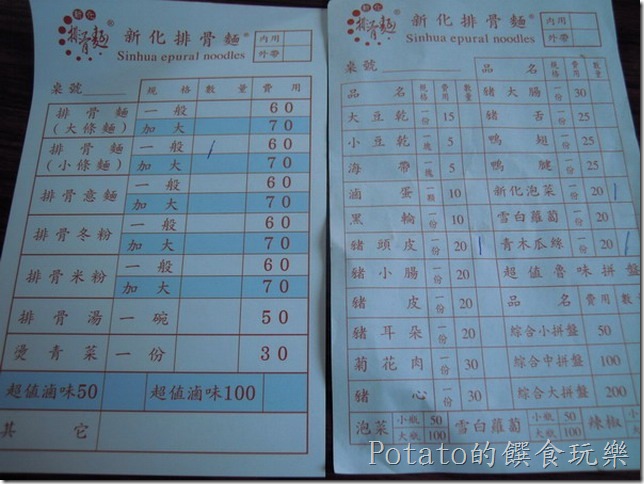 新化
排骨麵
新化排骨麵®
Sinhua epural noodles
內用
外帶
桌號
規格 數量 費用
排骨麵(大條麵) 一般 60
加大 70
排骨麵(小條麵) 一般 1 60
加大 70
排骨意麵 一般 60
加大 70
排骨冬粉 一般 60
加大 70
排骨米粉 一般 60
加大 70
排骨湯 一碗 50
燙青菜 一份 30
超值滷味50 超值滷味100
其它
新化
排骨麵
新化排骨麵®
Sinhua epural noodles
內用
外帶
桌號
品名 規格 費用 數量
品名 規格 費用 數量 豬大腸 一份 30
大豆乾 一份 15 豬舌 一份 25
小豆乾 一塊 5 鴨翅 一份 25
海帶 一塊 5 鴨腱 一份 25
滷蛋 一顆 10 新化泡菜 一份 20 1
黑輪 一份 10 雪白蘿蔔 一份 20
豬頭皮 一份 20 1 青木瓜絲 一份 20 1
豬小腸 一份 20 超值魯味拼盤
豬皮 一份 20 品名 費用 數量
豬耳朵 一份 20 綜合小拼盤 50
菊花肉 一份 30 綜合中拼盤 100
豬心 一份 30 綜合大拼盤 200
泡菜 小瓶 50 大瓶 100 雪白蘿蔔 小瓶 50 大瓶 100 辣椒
Potato的饌食玩樂